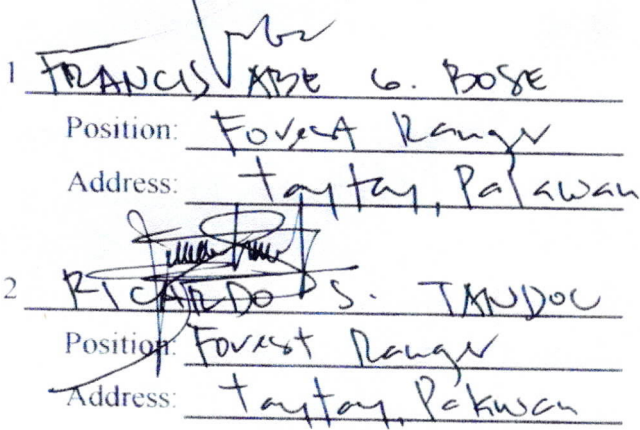 1 FRANCIS ABE G. BOSE
Position: Forest Ranger
Address: Taytay, Palawan
2 RICARDO S. TANDOC
Position: Forest Ranger
Address: Taytay, Palawan